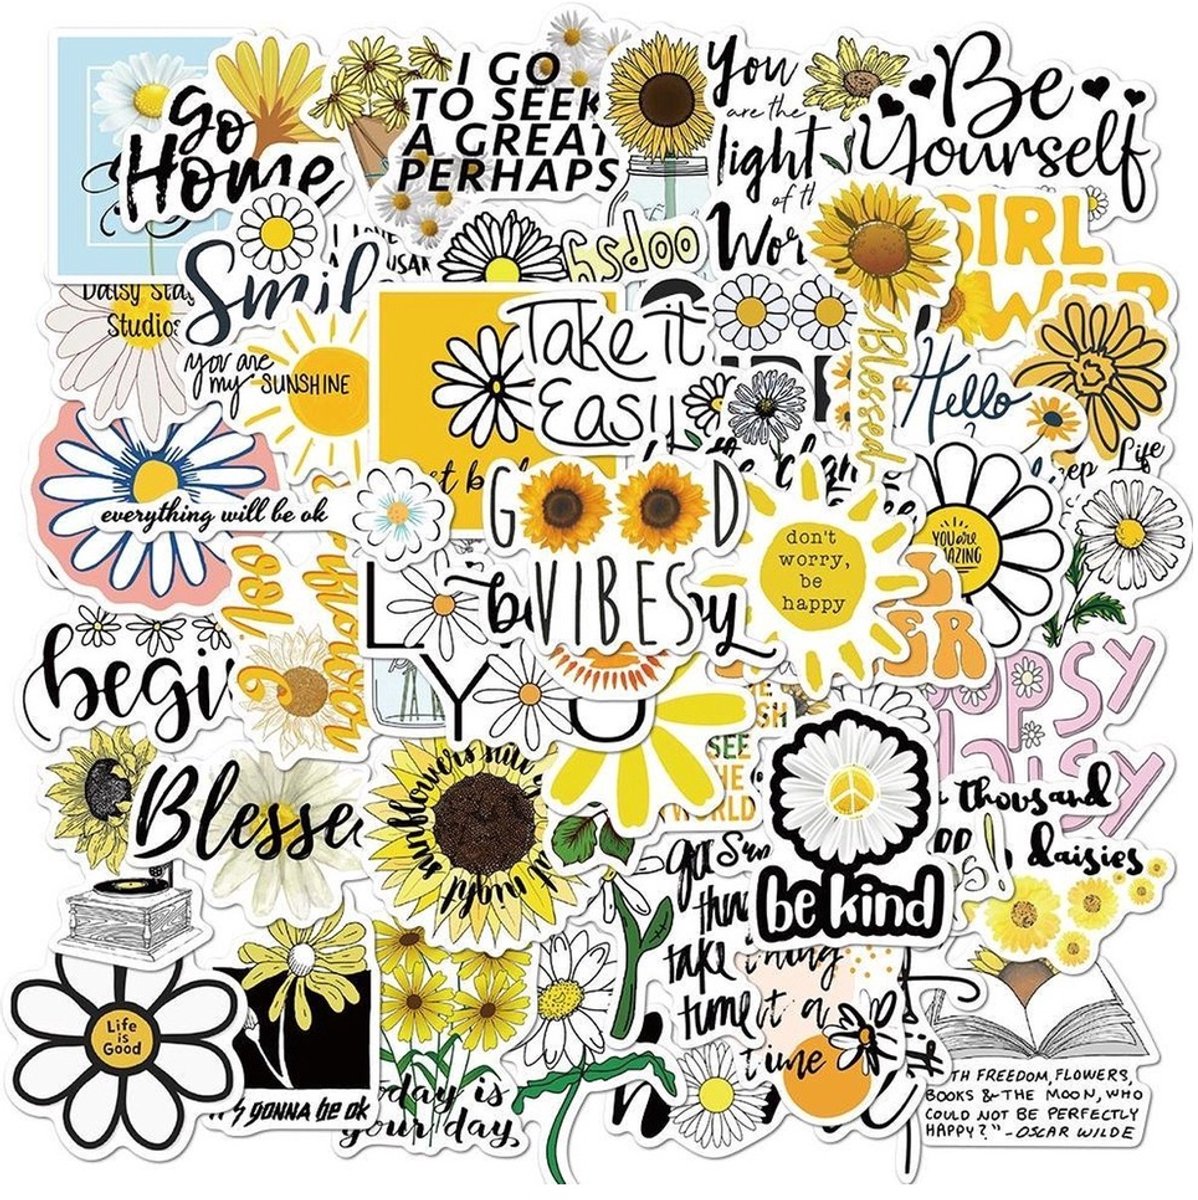 Go
Home
I GO
TO SEEK
A GREAT
PERHAPS
You
are the
light
of th
Wor
Be
Yourself
GIRL
Smil
oopsy
Daisy Stay
Studios
you are
my SUNSHINE
Take it
Easy
Blessed
Hello
Life
everything will be ok
GOOD
VIBES
don't
worry,
be
happy
YOU are
AZING
L
YO
begi
flower
Blesse
sunflowers
night
SEE
THE
WORLD
OOPSY
be kind
thousand
daisies
good
thin
take
time
thing
it a
time
Life
is
Good
it's gonna be ok
today is
your day
TH FREEDOM, FLOWERS,
BOOKS & THE MOON, WHO
COULD NOT BE PERFECTLY
HAPPY?" - OSCAR WILDE